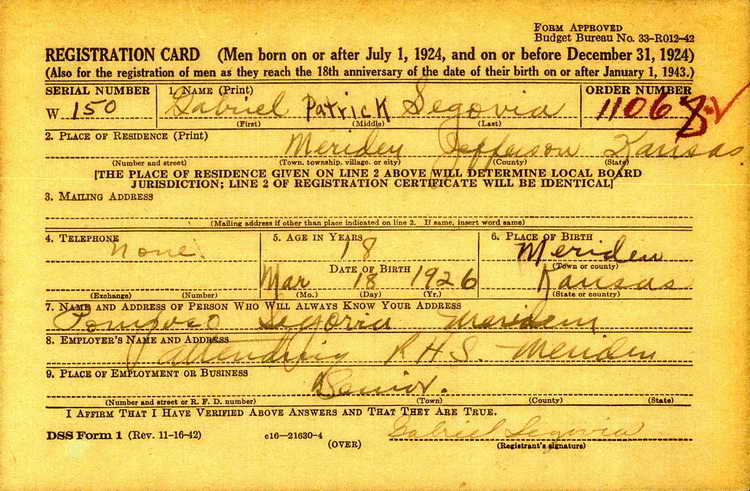 FORM APPROVED
Budget Bureau No. 33-R012-42
REGISTRATION CARD (Men born on or after July 1, 1924, and on or before December 31, 1924)
(Also for the registration of men as they reach the 18th anniversary of the date of their birth on or after January 1, 1943.)
SERIAL NUMBER 1. NAME (Print) ORDER NUMBER
W 150 Gabriel Patrick Segovia 11068
(First) (Middle) (Last)
2. PLACE OF RESIDENCE (Print)
Meriden Jefferson Kansas
(Number and street) (Town, township, village, or city) (County) (State)
[THE PLACE OF RESIDENCE GIVEN ON LINE 2 ABOVE WILL DETERMINE LOCAL BOARD
JURISDICTION; LINE 2 OF REGISTRATION CERTIFICATE WILL BE IDENTICAL]
3. MAILING ADDRESS
(Mailing address if other than place indicated on line 2. If same, insert word same)
4. TELEPHONE 5. AGE IN YEARS 6. PLACE OF BIRTH
None. 18 Meriden
DATE OF BIRTH (Town or county)
Mar 18 1926 Kansas
(Exchange) (Number) (Mo.) (Day) (Yr.) (State or country)
7. NAME AND ADDRESS OF PERSON WHO WILL ALWAYS KNOW YOUR ADDRESS
Segovia Meriden
8. EMPLOYER'S NAME AND ADDRESS
attending R.H.S. Meriden
9. PLACE OF EMPLOYMENT OR BUSINESS
Senior.
(Number and street or R. F. D. number) (Town) (County) (State)
I AFFIRM THAT I HAVE VERIFIED ABOVE ANSWERS AND THAT THEY ARE TRUE.
DSS Form 1 (Rev. 11-16-42) c16-21630-4 Gabriel Segovia
(OVER) (Registrant's signature)